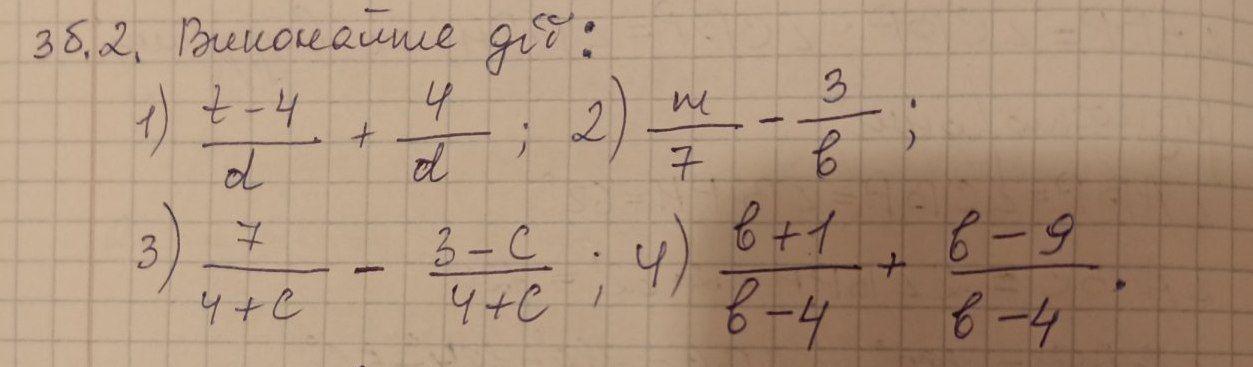 Зб.2. Виконайте дії:
1) (t-4)/d + 4/d ; 2) m/7 - 3/b ;
3) 7/(4+c) - (3-c)/(4+c) ; 4) (b+1)/(b-4) + (b-9)/(b-4) .